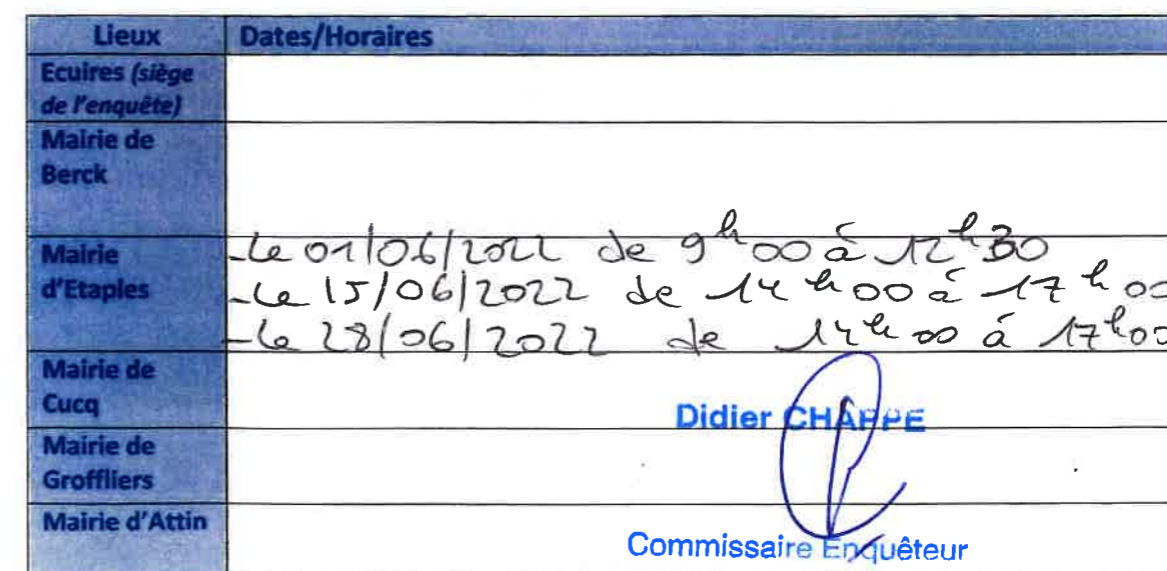 Lieux Dates/Horaires
Ecuires (siège
de l'enquête)
Mairie de
Berck
Mairie
d'Etaples
-Le 01/06/2022 de 9h00 à 12h30
-Le 15/06/2022 de 14h00 à 17h00
-Le 28/06/2022 de 14h00 à 17h00
Mairie de
Cucq
Didier CHAPPE
Mairie de
Groffliers
Mairie d'Attin
Commissaire Enquêteur